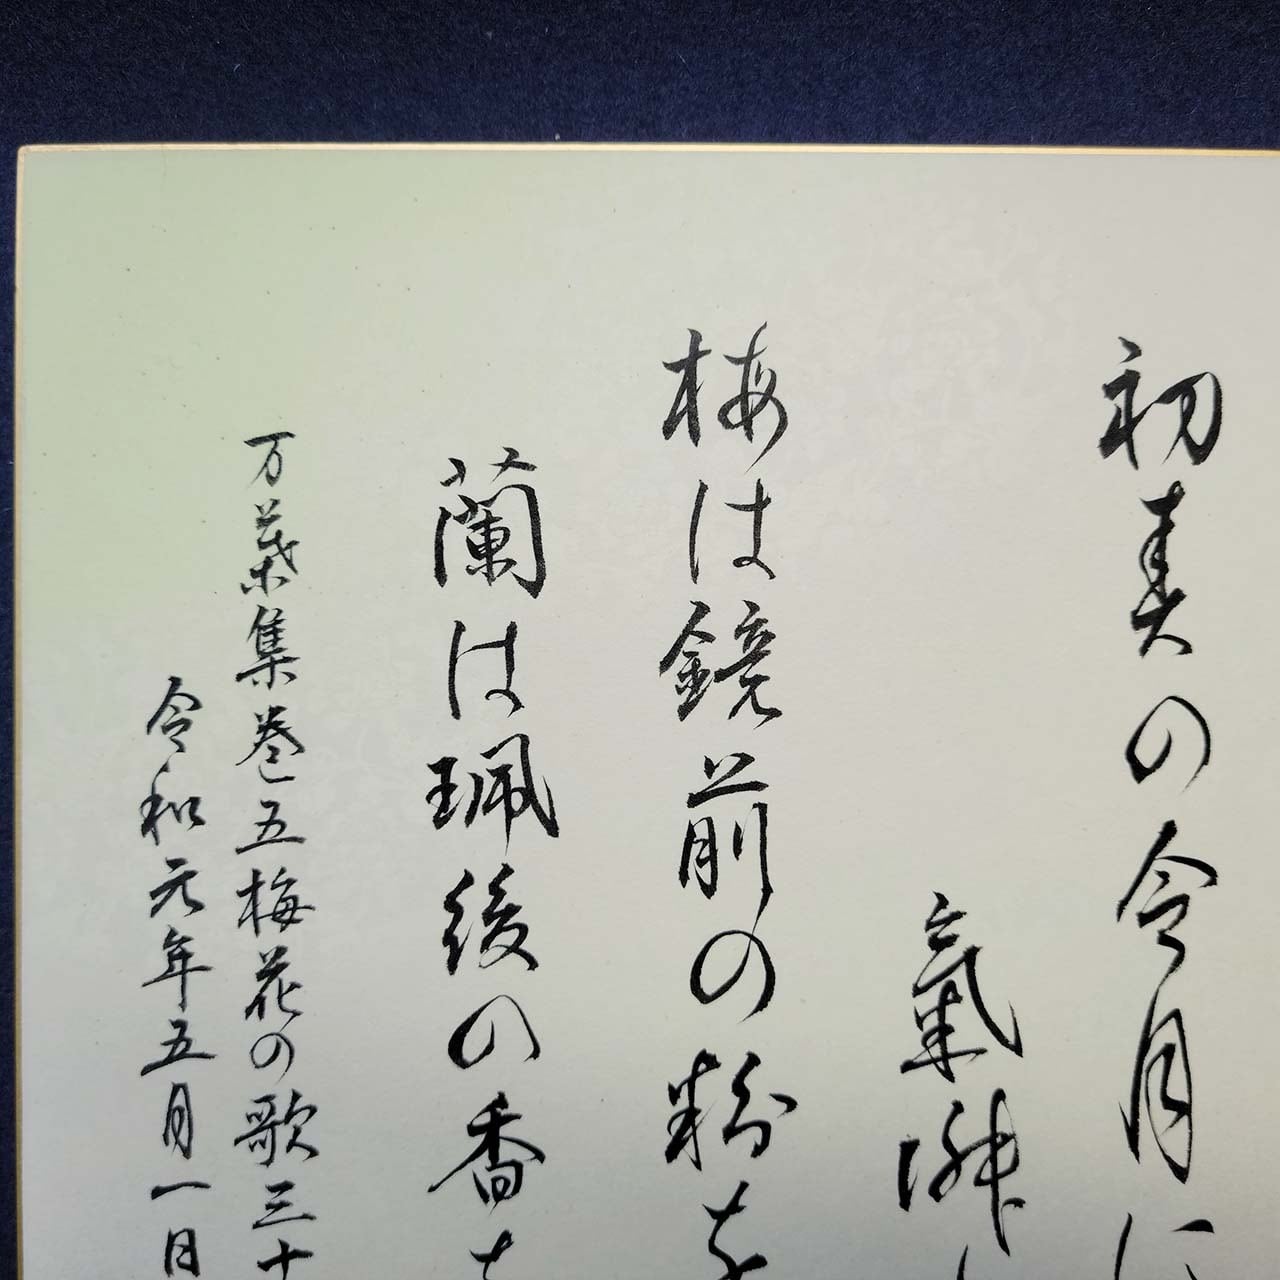 初春の令月に
氣淑
梅は鏡前の粉を
蘭は珮後の香を
万葉集巻五梅花の歌三十
令和元年五月一日